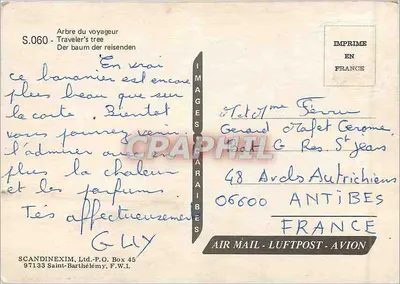 Arbre du voyageur
S.060 - Traveler's tree
Der baum der reisenden
En vrai
ce bananier est encore
plus beau que sur
la carte. Bientôt
vous pourrez venir
l'admirer avec en
plus la chaleur
et les parfums.
Tés affectueusement
GUY
SCANDINEXIM, Ltd.-P.O. Box 45
97133 Saint-Barthélémy, F.W.I.
IMAGES CARAIBES
CPAPHIL
IMPRIME
EN
FRANCE
M et Mme
Gérard
Bat G Res. St Jears
48 Av des Autrichiens
06600 ANTIBES
FRANCE
AIR MAIL - LUFTPOST - AVION